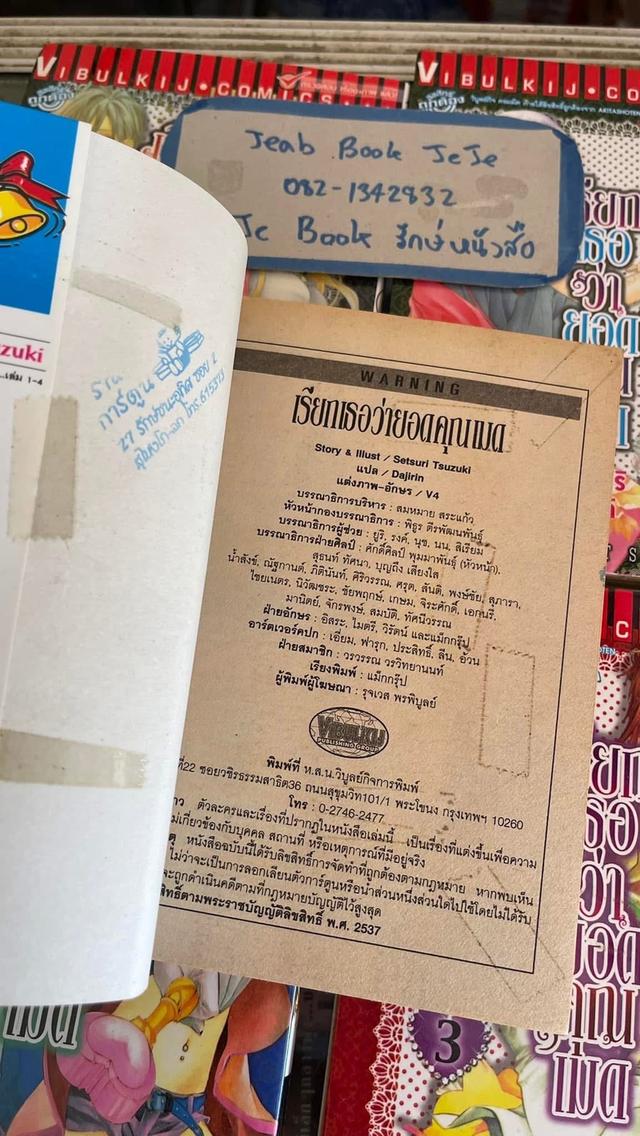 VIBULKIJ•COMICS
VIBULKIJ•CO
Jeab Book JeJe
082-1342832
Je Book รักษ์หนังสือ
zuki
เล่ม 1-4
การ์ตูน
27 รักษ์ชนะอุทิศ ซอย 2
สุไหงโก-ลก โทร.615313
WARNING
เรียกเธอว่ายอดคุณเมด
Story & Illust / Setsuri Tsuzuki
แปล / Dajirin
แต่งภาพ-อักษร / V4
บรรณาธิการบริหาร : สมหมาย สระแก้ว
หัวหน้ากองบรรณาธิการ : พิธูร ตีรพัฒนพันธุ์
บรรณาธิการผู้ช่วย : ยูริ, รงค์, นุช, นน, สิเรียม
บรรณาธิการฝ่ายศิลป์ : ศักดิ์ศิลป์ พุมมาพันธุ์ (หัวหน้า),
สุธนท์ ทัศนา, บุญถึง เสียงใส
น้ำสังข์, ณัฐกานต์, กิตินันท์, ศิริวรรณ, ศรุต, สันติ, พงษ์ชัย, สุภารา,
ไชยเนตร, นิวัฒชระ, ชัยพฤกษ์, เกษม, จิระศักดิ์, เอกนรี,
มานิตย์, จักรพงษ์, สมบัติ, ทัศนีวรรณ
ฝ่ายอักษร : อิสระ, ไมตรี, วิรัตน์ และแม็กกรุ๊ป
อาร์ตเวอร์คปก : เอี่ยม, ฟารุก, ประสิทธิ์, ลีน, อ้วน
ฝ่ายสมาชิก : วรวรรณ วรวิทยานนท์
เรียงพิมพ์ : แม็กกรุ๊ป
ผู้พิมพ์ผู้โฆษณา : รุจเวส พรพิบูลย์
VIBULKIJ
PUBLISHING GROUP
พิมพ์ที่ ห.ส.น.วิบูลย์กิจการพิมพ์
22 ซอยวชิรธรรมสาธิต36 ถนนสุขุมวิท101/1 พระโขนง กรุงเทพฯ 10260
โทร : 0-2746-2477
ตัวละครและเรื่องที่ปรากฏในหนังสือเล่มนี้ เป็นเรื่องที่แต่งขึ้นเพื่อความ
ม่เกี่ยวข้องกับบุคคล สถานที่ หรือเหตุการณ์ที่มีอยู่จริง
หนังสือฉบับนี้ได้รับลิขสิทธิ์การจัดทำที่ถูกต้องตามกฎหมาย หากพบเห็น
ไม่ว่าจะเป็นการลอกเลียนตัวการ์ตูนหรือนำส่วนหนึ่งส่วนใดไปใช้โดยไม่ได้รับ
จะถูกดำเนินคดีตามที่กฎหมายบัญญัติไว้สูงสุด
สิทธิ์ตามพระราชบัญญัติลิขสิทธิ์ พ.ศ. 2537
3